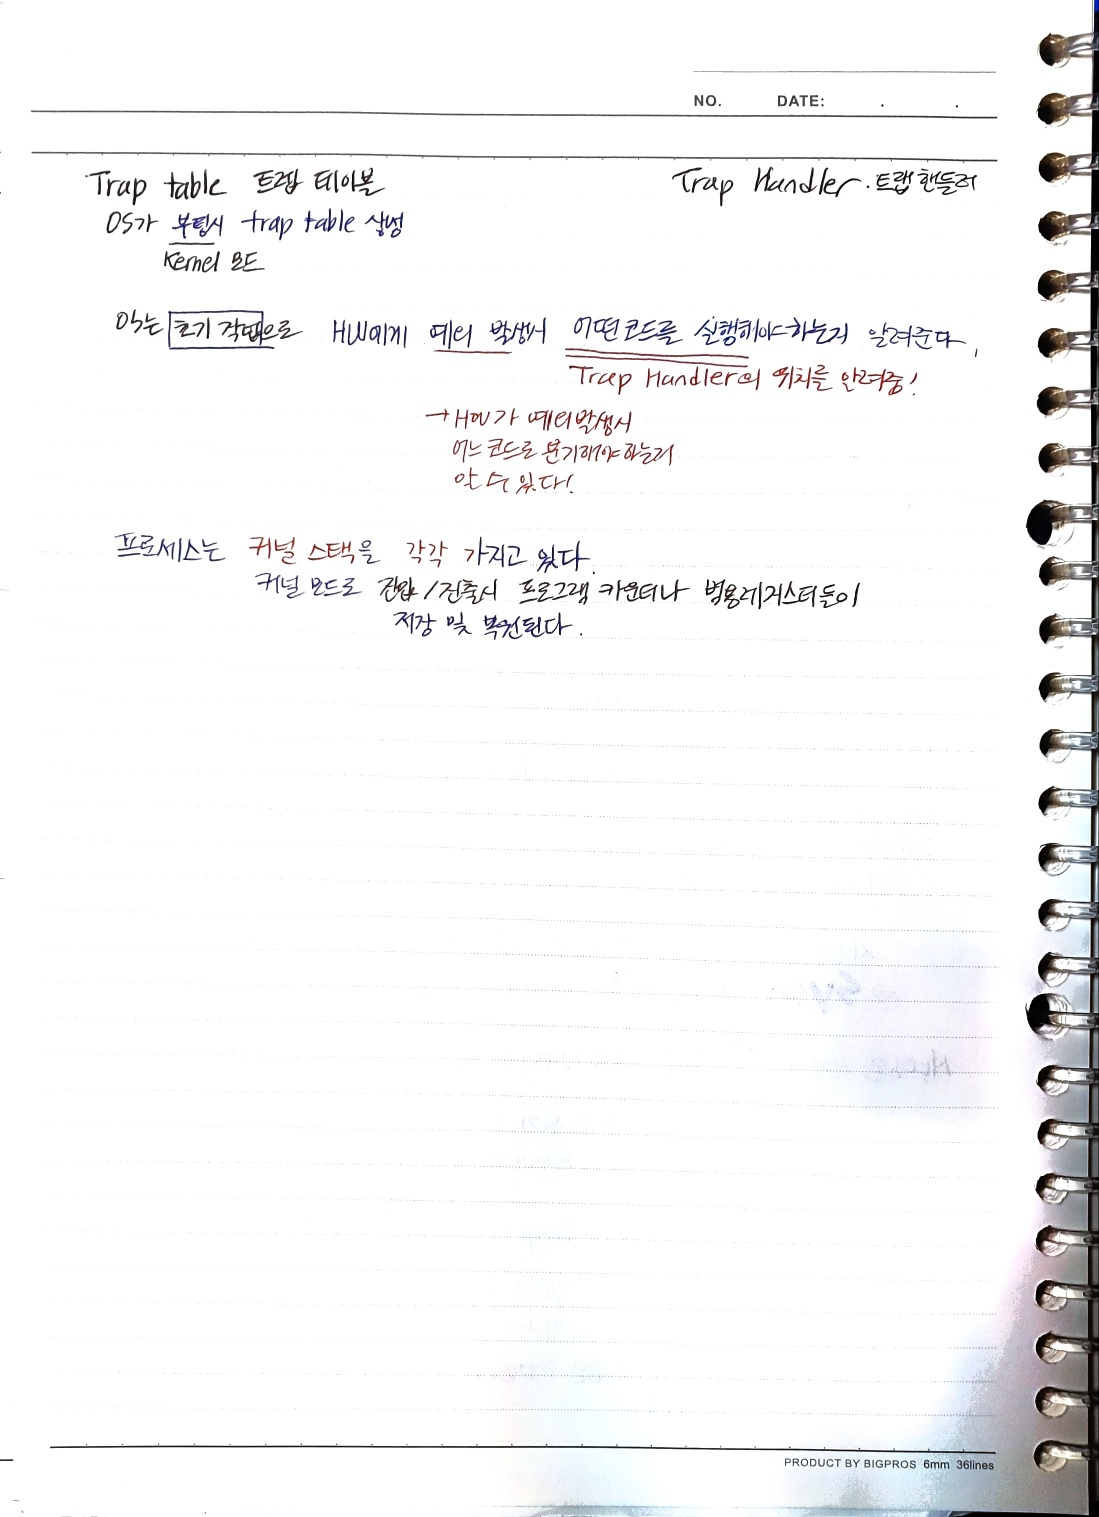 NO. DATE: . .
Trap table 트랩 테이블
Trap Handler. 트랩 핸들러
OS가 부팅시 trap table 설정
Kernel 모드
OS는 초기 작업으로 HW에게 예외 발생시 어떤코드를 실행해야하는지 알려준다.
Trap Handler의 위치를 알려줌!
→ HW가 예외발생시
어느코드로 분기해야하는지
알 수 있다!
프로세스는 커널 스택을 각각 가지고 있다.
커널 모드로 진입/진출시 프로그램 카운터나 범용레지스터들이
저장 및 복원된다.
PRODUCT BY BIGPROS 6mm 36lines